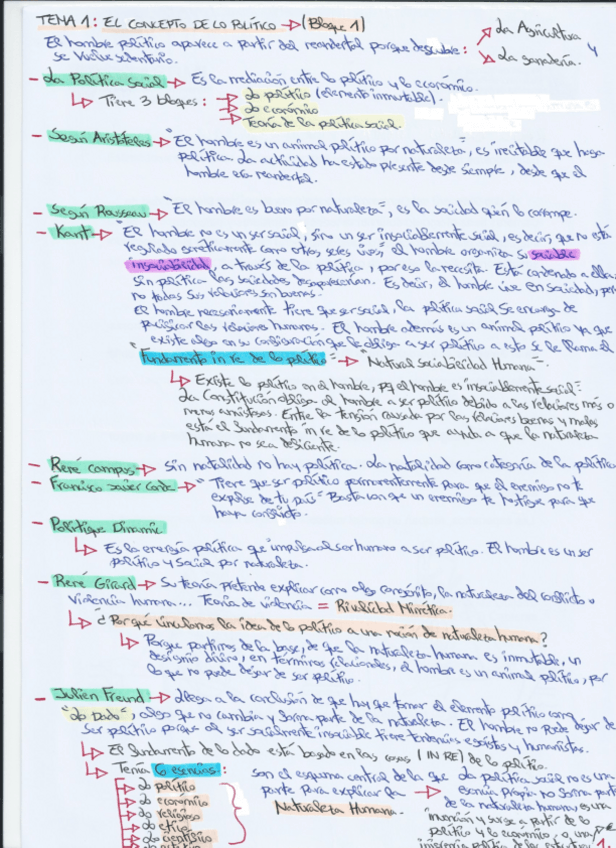 TEMA 1: EL CONCEPTO DE LO POLÍTICO → (Bloque 1)
El hombre político aparece a partir del neandertal porque descubre: La Agricultura y
se vuelve sedentario. La ganadería.
- La Política Social → Es la mediación entre lo político y lo económico.
Tiene 3 bloques: → Lo político (elemento inmutable).
→ Lo económico
→ Teoría de la política social.
- Según Aristóteles → "El hombre es un animal político por naturaleza", es inevitable que haga
política. La actividad ha estado presente desde siempre, desde que el
hombre era neandertal.
- Según Rousseau → "El hombre es bueno por naturaleza", es la sociedad quien lo corrompe.
- Kant → "El hombre no es un ser social, sino un ser insociablemente social, es decir, que no está
regulado genéticamente como otros seres vivos", el hombre organiza su sociable
insociabilidad a través de la política, por eso la necesita. Está condenado a ella
sin política las sociedades desaparecerían. Es decir, el hombre vive en sociedad, pero
no todas sus relaciones son buenas.
El hombre necesariamente tiene que ser social, la política social se encarga de
las relaciones humanas. El hombre además es un animal político ya que
existe algo en su configuración que le obliga a ser político a esto se le llama el
"Fundamento in re de lo político" → "Natural sociabilidad Humana".
Existe lo político en el hombre, pq el hombre es insociablemente social.
La Constitución obliga al hombre a ser político debido a las relaciones más o
menos amistosas. Entre la tensión causada por las relaciones buenas y malas
está el fundamento in re de lo político que ayuda a que la naturaleza
humana no sea deficiente.
- René campus → Sin natalidad no hay política. La natalidad como categoría de la política
- Francisco Javier Conde → "Tiene que ser político permanentemente para que el enemigo no te
expulse de tu país" Basta con que un enemigo te hostigue para que
haya conflicto.
- Politique Dinamic
Es la energía política que impulsa al ser humano a ser político. El hombre es un ser
político y social por naturaleza.
- René Girard → Su teoría pretende explicar como algo congénito, la naturaleza del conflicto o
violencia humana... Teoría de violencia = Rivalidad Mimética.
¿Por qué vinculamos la idea de lo político a una noción de naturaleza humana?
Porque partimos de la base, de que la naturaleza humana es inmutable, un
designio divino, en términos relacionales, el hombre es un animal político, por
lo que no puede dejar de ser político.
- Julien Freund → Llega a la conclusión de que hay que tomar el elemento político como
"lo Dado", algo que no cambia y forma parte de la naturaleza. El hombre no puede dejar de
ser político porque al ser socialmente insociable tiene tendencias egoístas y humanistas.
El fundamento de lo dado está basado en las cosas (IN RE) de lo político.
Tenía 6 esencias: son el esquema central de la que La política social no es un
→ Lo político parte para explicar la → esencia propia no forma parte
→ Lo económico Naturaleza Humana. de la naturaleza humana, es una
→ Lo religioso invención y surge a partir de lo
→ Lo ético político y lo económico, o una
→ Lo científico
1.